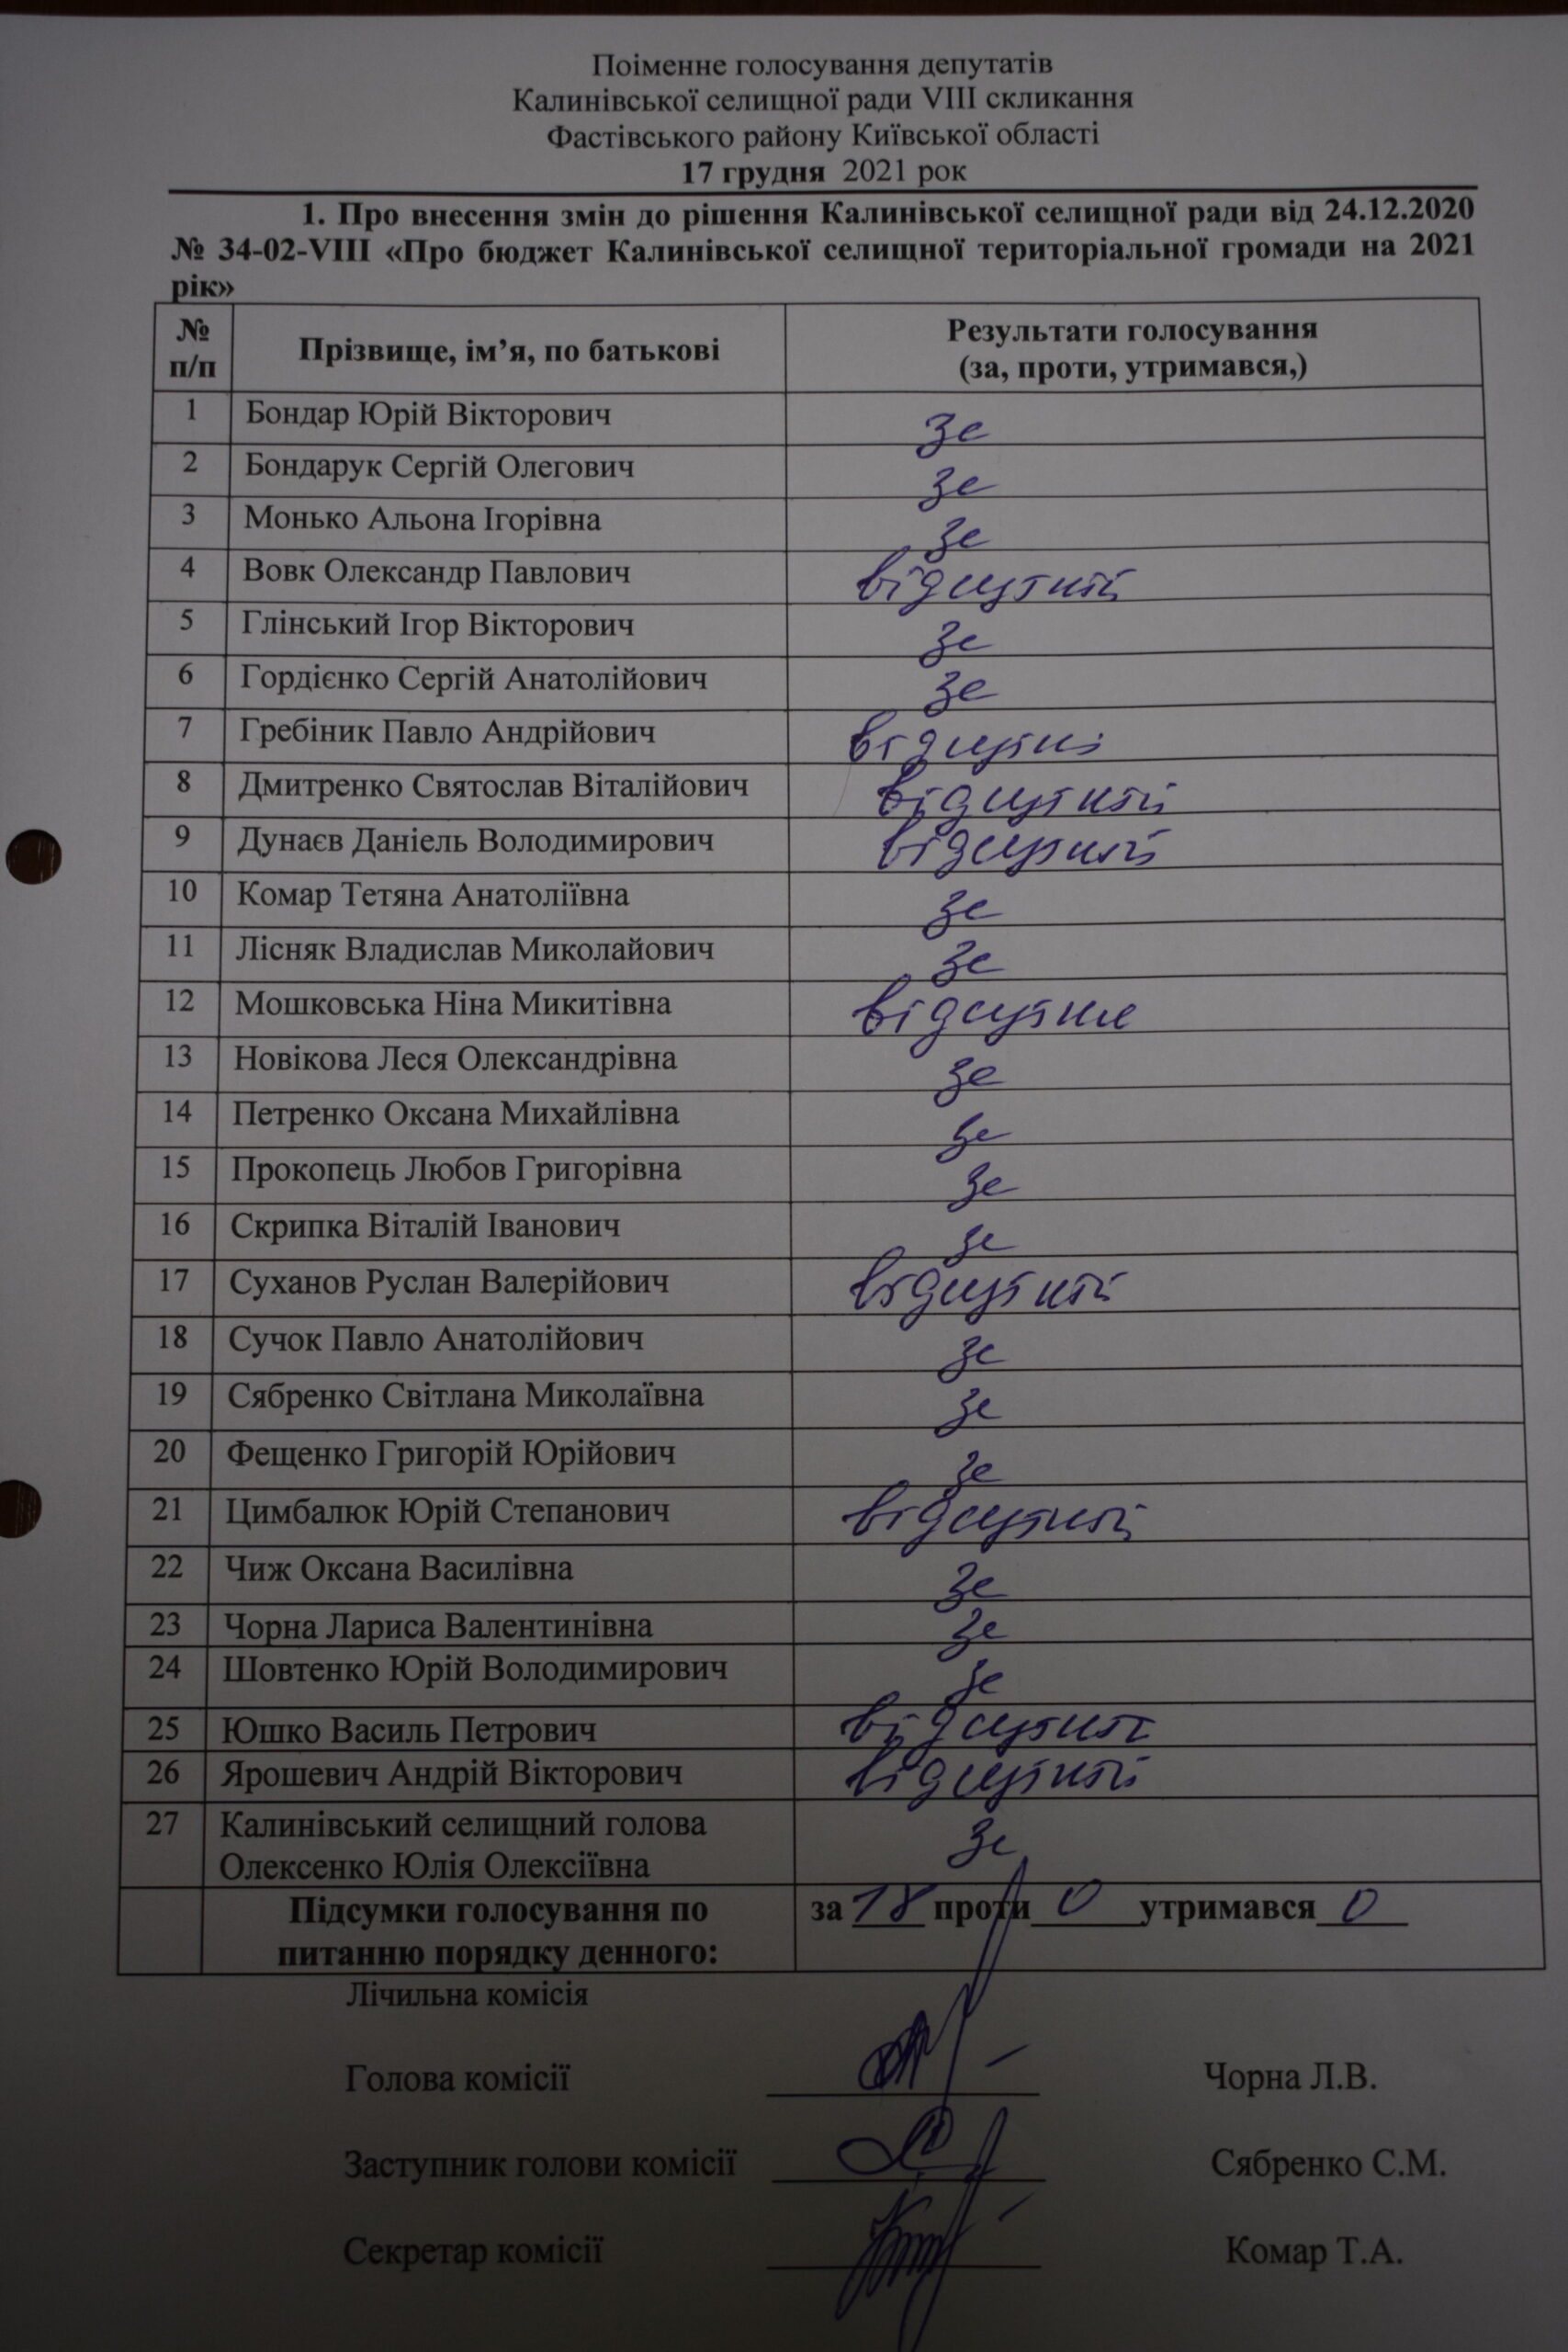 Поіменне голосування депутатів
Калинівської селищної ради VIII скликання
Фастівського району Київської області
17 грудня 2021 рок
1. Про внесення змін до рішення Калинівської селищної ради від 24.12.2020
№ 34-02-VIII «Про бюджет Калинівської селищної територіальної громади на 2021
рік»
№ п/п Прізвище, ім’я, по батькові Результати голосування
(за, проти, утримався,)
1 Бондар Юрій Вікторович за
2 Бондарук Сергій Олегович за
3 Монько Альона Ігорівна за
4 Вовк Олександр Павлович відсутній
5 Глінський Ігор Вікторович за
6 Гордієнко Сергій Анатолійович за
7 Гребіник Павло Андрійович
8 Дмитренко Святослав Віталійович відсутній
9 Дунаєв Даніель Володимирович відсутній
10 Комар Тетяна Анатоліївна за
11 Лісняк Владислав Миколайович за
12 Мошковська Ніна Микитівна відсутня
13 Новікова Леся Олександрівна за
14 Петренко Оксана Михайлівна за
15 Прокопець Любов Григорівна за
16 Скрипка Віталій Іванович за
17 Суханов Руслан Валерійович відсутній
18 Сучок Павло Анатолійович за
19 Сябренко Світлана Миколаївна за
20 Фещенко Григорій Юрійович за
21 Цимбалюк Юрій Степанович відсутній
22 Чиж Оксана Василівна за
23 Чорна Лариса Валентинівна за
24 Шовтенко Юрій Володимирович за
25 Юшко Василь Петрович відсутній
26 Ярошевич Андрій Вікторович відсутній
27 Калинівський селищний голова
Олексенко Юлія Олексіївна за
Підсумки голосування по за 18 проти 0 утримався 0
питанню порядку денного:
Лічильна комісія
Голова комісії Чорна Л.В.
Заступник голови комісії Сябренко С.М.
Секретар комісії Комар Т.А.